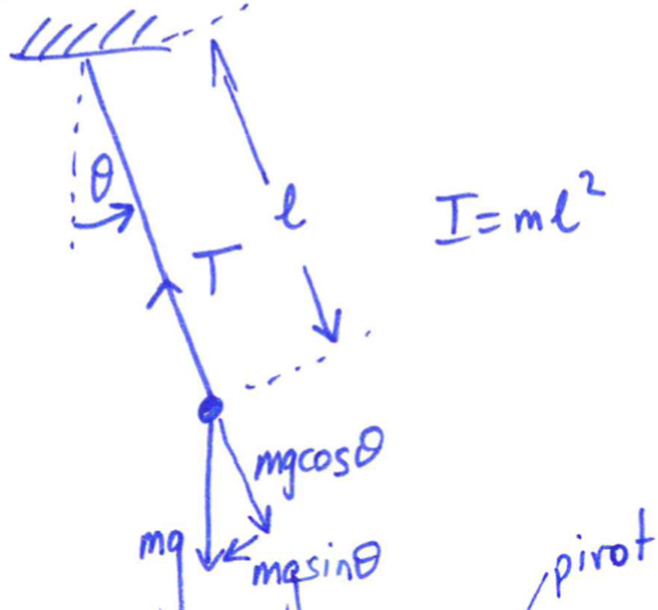 θ
l
I=ml²
T
mgcosθ
mg
mgsinθ
pivot